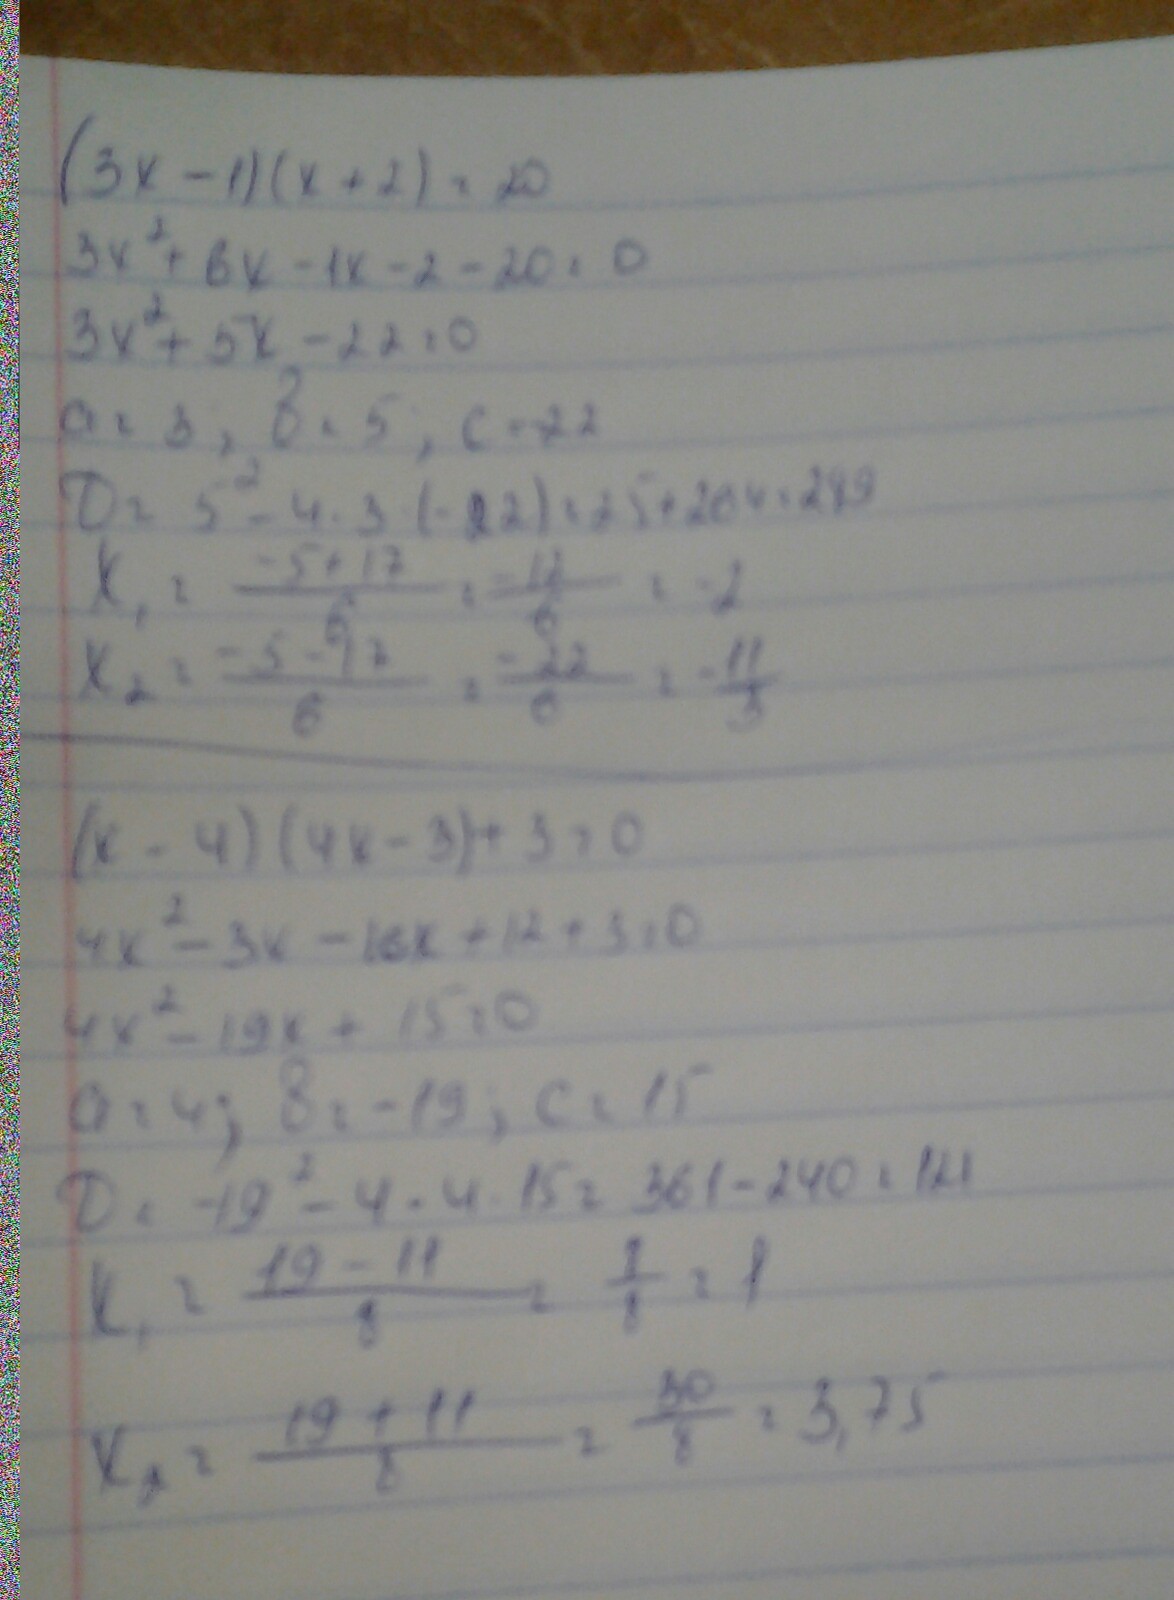 (3x - 1)(x + 2) = 20
3x² + 6x - 1x - 2 - 20 = 0
3x² + 5x - 22 = 0
a = 3, b = 5, c = -22
D = 5² - 4 · 3 · (-22) = 25 + 264 = 289
x₁ = (-5 + 17)/6 = -12/6 = -2
x₂ = (-5 - 17)/6 = -22/6 = -11/3
(x - 4)(4x - 3) + 3 = 0
4x² - 3x - 16x + 12 + 3 = 0
4x² - 19x + 15 = 0
a = 4; b = -19; c = 15
D = -19² - 4 · 4 · 15 = 361 - 240 = 121
x₁ = (19 - 11)/8 = 8/8 = 1
x₂ = (19 + 11)/8 = 30/8 = 3,75